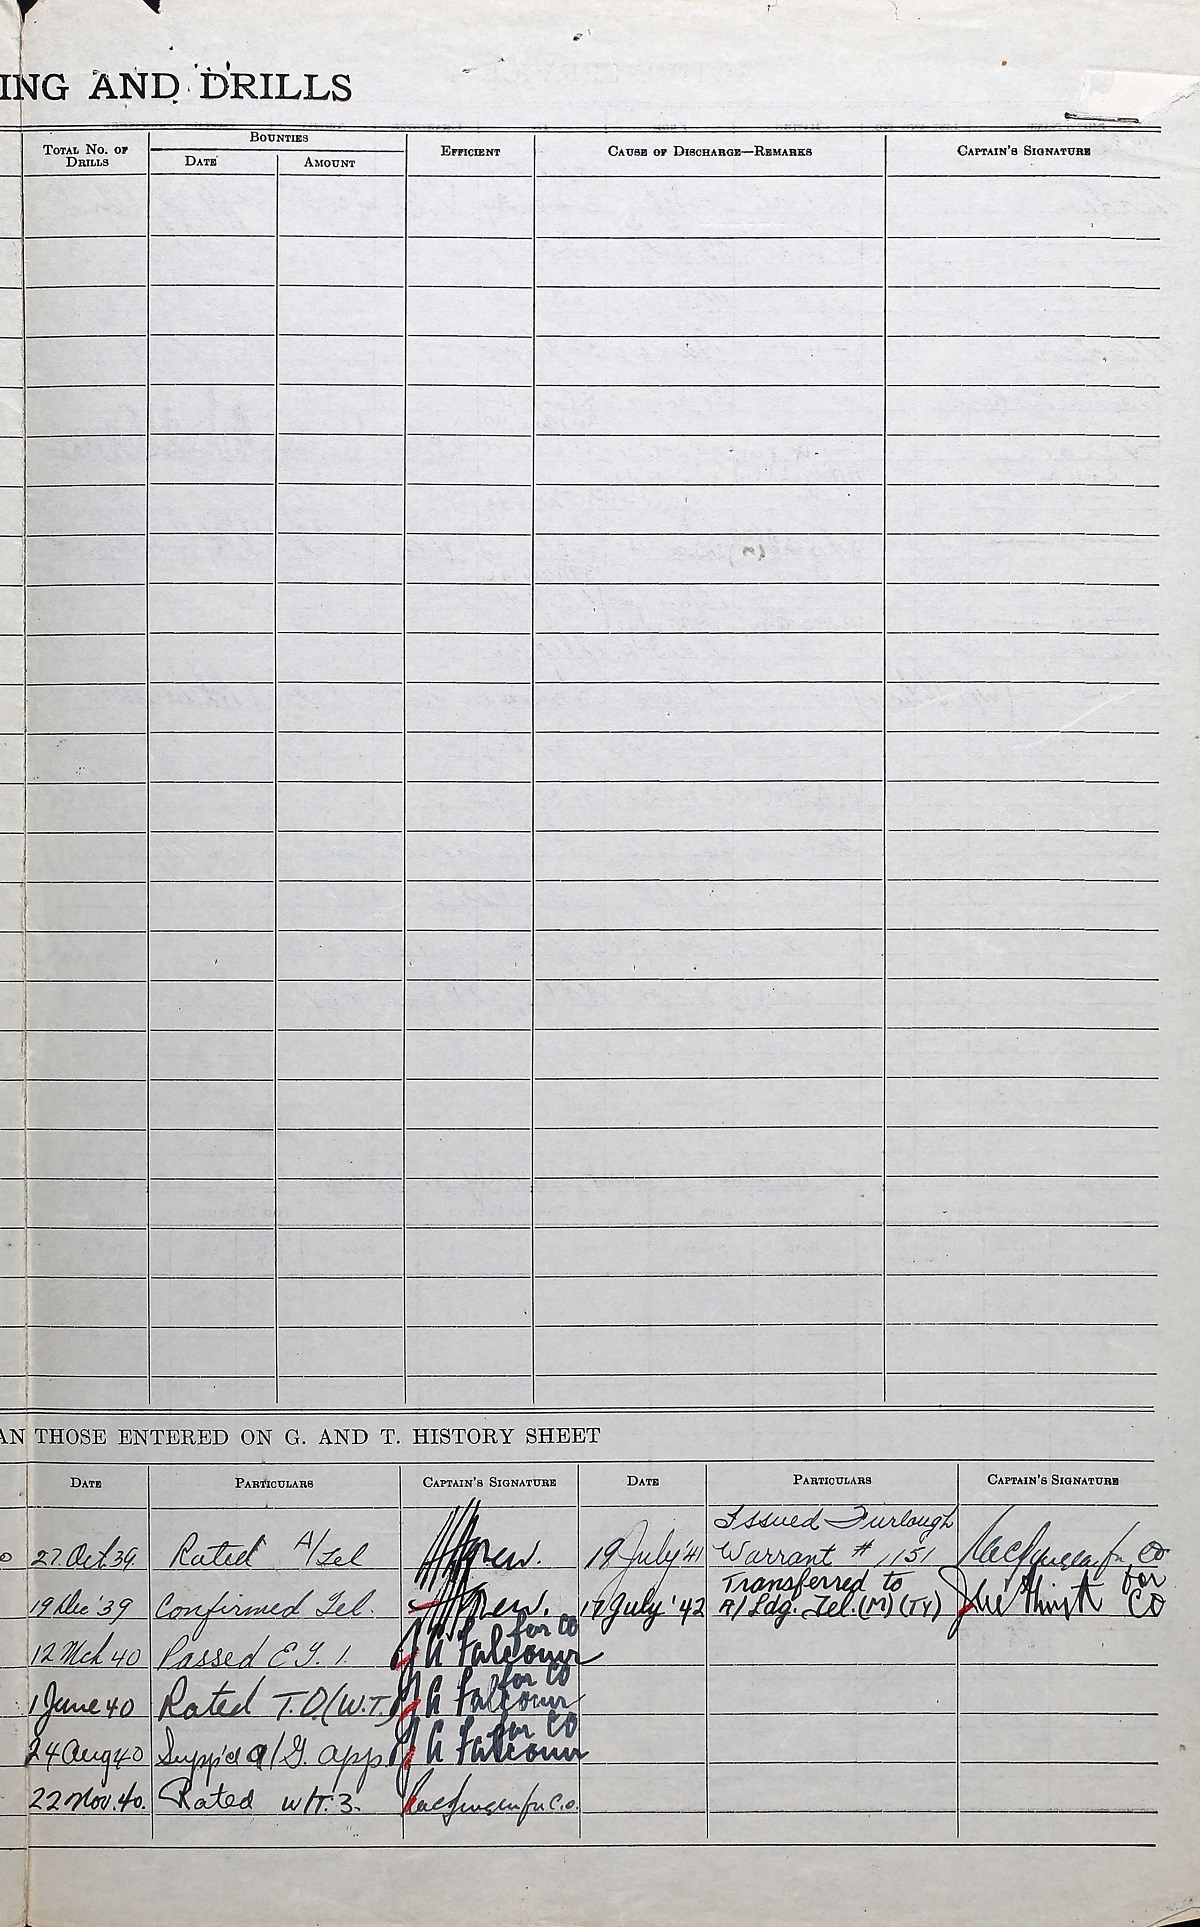 ING AND DRILLS
TOTAL NO. OF DRILLS BOUNTIES EFFICIENT CAUSE OF DISCHARGE—REMARKS CAPTAIN'S SIGNATURE
DATE AMOUNT
AN THOSE ENTERED ON G. AND T. HISTORY SHEET
DATE PARTICULARS CAPTAIN'S SIGNATURE DATE PARTICULARS CAPTAIN'S SIGNATURE
27. Oct. 39. Rated A/Tel 19 July '41 Issued Furlough
Warrant # 1151 for CO
19 Dec '39 Confirmed Tel. 17 July '42 Transferred to
A/Ldg. Tel. (M) (TY) for CO
12 Mch 40 Passed E.T. 1. J A Falconer for CO
1 June 40 Rated T.O. (W.T.) J A Falconer for CO
24 Aug 40 Supp'd a/G. app. J A Falconer for CO
22 Nov. 40. Rated W/T. 3. for C.O.